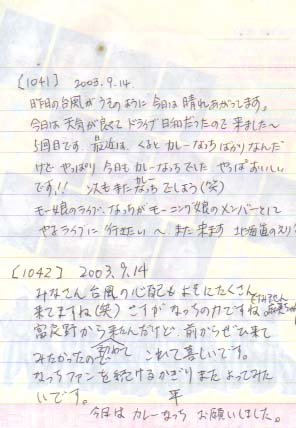 [1041] 2003.9.14
昨日の台風がうそのように今日は晴れあがってます。
今日は天気が良くて ドライブ日和だったので 来ました〜
5回目です 最近は、くると カレーなっちばかりなんだ
けど やっぱり 今日も カレーなっちでした やっぱおいしい
です!! 次もまたカレーなっちでしょう(笑)
モー娘のライブ、なっちがモーニング娘のメンバーとして
やるライブに 行きたい〜 また来ます 北海道の
[1042] 2003.9.14
みなさん 台風の心配もよそにたくさん
来てますね(笑) さすが なっちの力ですね。
富良野から来たんだけど、前からぜひ来て
みたかったので 初めて これて喜しいです。
なっちファンを続けるかぎり また よってみた
いです。 平
今日は カレーなっち お願いしました。